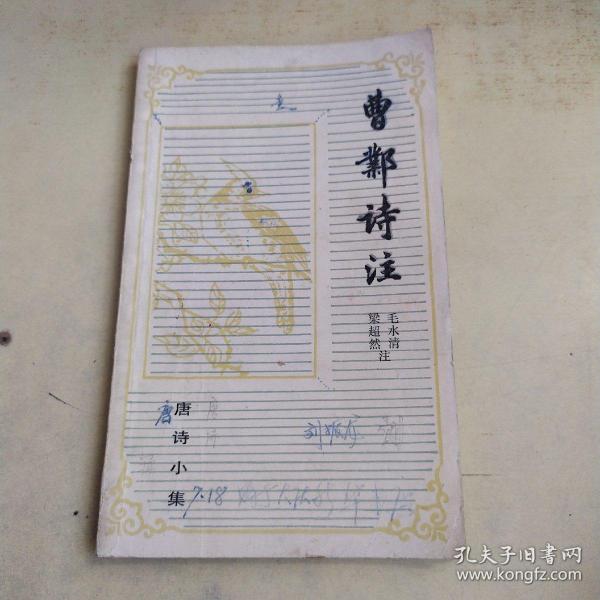 曹鄴诗注
毛水清
梁超然
注
唐诗小集
唐
7.18
孔夫子旧书网
www.kongfz.com